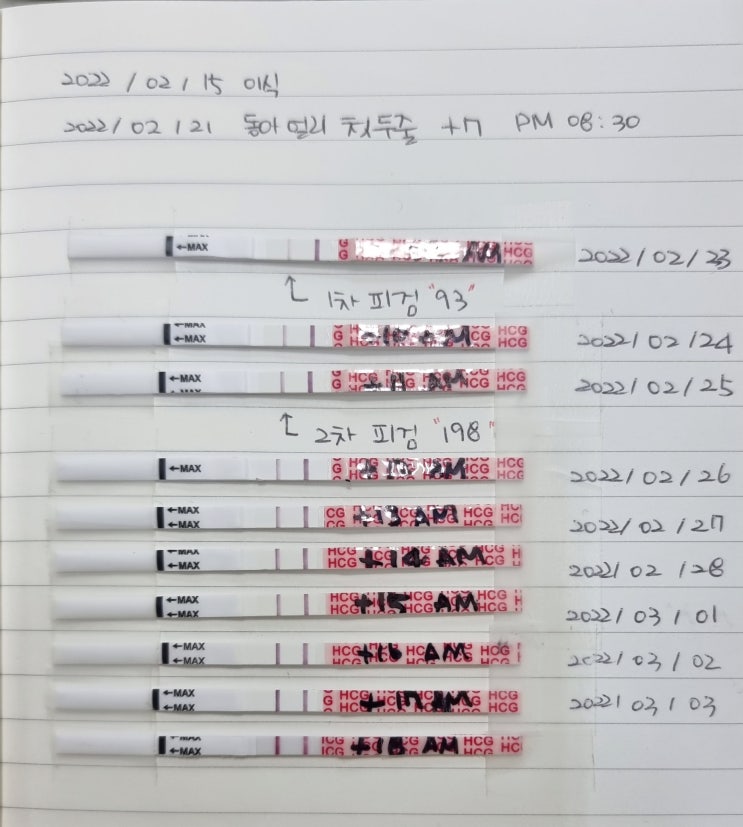 2022 / 02 / 15 이식
2022 / 02 / 21 동아 얼리 첫두줄 +7 PM 08:30
←MAX G G AM HCG 2022 / 02 / 23
1차 피검 "93"
←MAX ←MAX G HCG +10 AM CG HCG HCG 2022 / 02 / 24
←MAX G HCG +11 AM HCG HCG 2022 / 02 / 25
2차 피검 "198"
←MAX G HCG +12 AM CG HCG HCG 2022 / 02 / 26
←MAX ←MAX CG HCG +13 AM HCG HCG 2022 / 02 / 27
←MAX HCG HCG +14 AM HCG HCG H 2022 / 02 / 28
←MAX ←MAX HCG HCG +15 AM HCG HCG H 2022 / 03 / 01
←MAX ←MAX HCG +16 HCG AM HCG HCG 2022 / 03 / 02
←MAX ←MAX G HCG +17 AM HCG HCG 2022 / 03 / 03
←MAX ICG ICG +18 AM HCG HCG HC